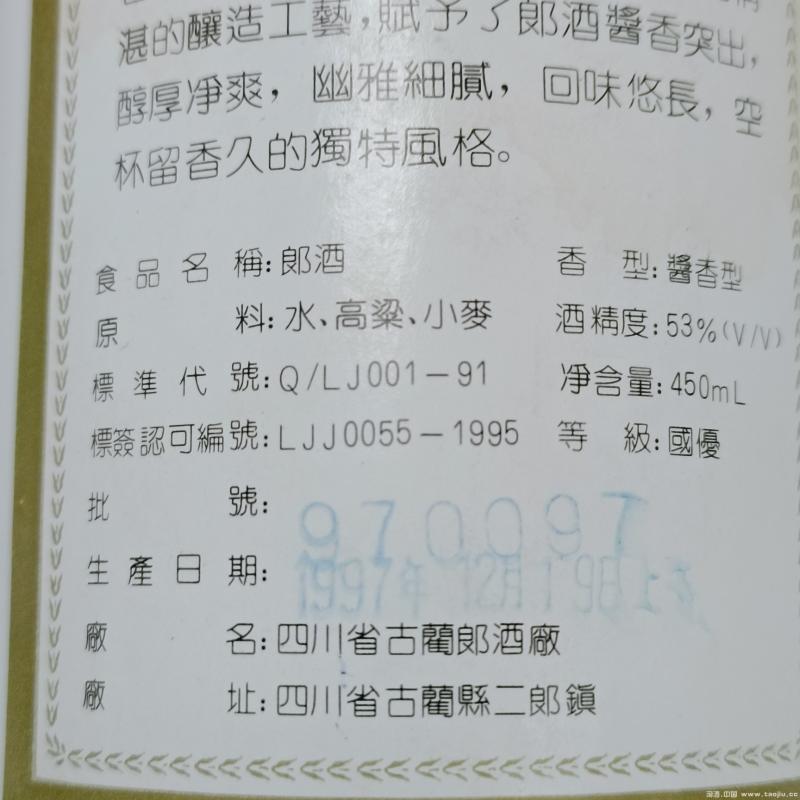 湛的釀造工藝，賦予了郎酒醬香突出，
醇厚净爽，幽雅細膩，回味悠長，空
杯留香久的獨特風格。
食品名稱：郎酒 香型：醬香型
原料：水、高粱、小麥 酒精度：53%(V/V)
標準代號：Q/LJ001－91 净含量：450mL
標簽認可編號：LJJ0055－1995 等級：國優
批號：970097
生產日期：1997年12月19日
廠名：四川省古藺郎酒廠
廠址：四川省古藺縣二郎鎮
淘酒.中国 www.taojiu.cc